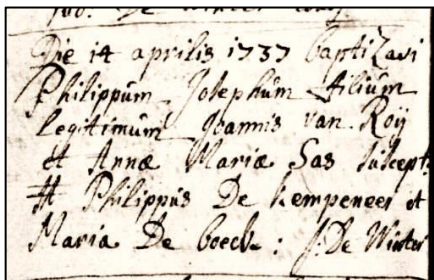 De Winter
Die 14 aprilis 1737 baptizavi
Philippum Josephum filium
legitimum Joannis van Roÿ
et Annæ Mariæ Sas suscept:
Philippus De Kempeneer et
Maria De boeck: J: De Winter